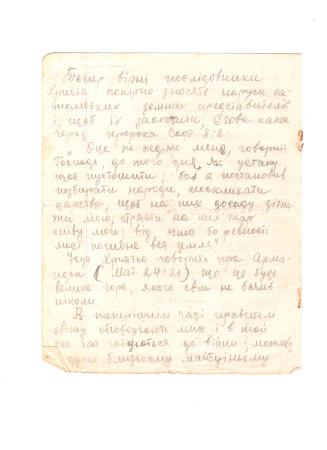 Тепер вірні послідовники
Христа покірно зносять наруги са-
танівських земних представителів
і, щоб їх заохотити, Єгова каже
через пророка Соф. 3:8:
"Оце ж ждіте мене, говорить
Господь, до того дня, як устану
щоб пустошити; бо я постановив
позбірати народи, поскликати
царства, щоб на них досаду зігна-
ти мою, стряти на них
гніву мого; від огню бо ревності
моєї погибне вся земля".
Ісус Христос говорить про Арма-
гедон (Мат. 24:21), що це буде
велике горе, якого світ не бачив
ніколи.
В теперішнім часі правителі
світу обговорюють мир і в той
же час готуються до війни і, можливо,
дуже близькому майбутньому